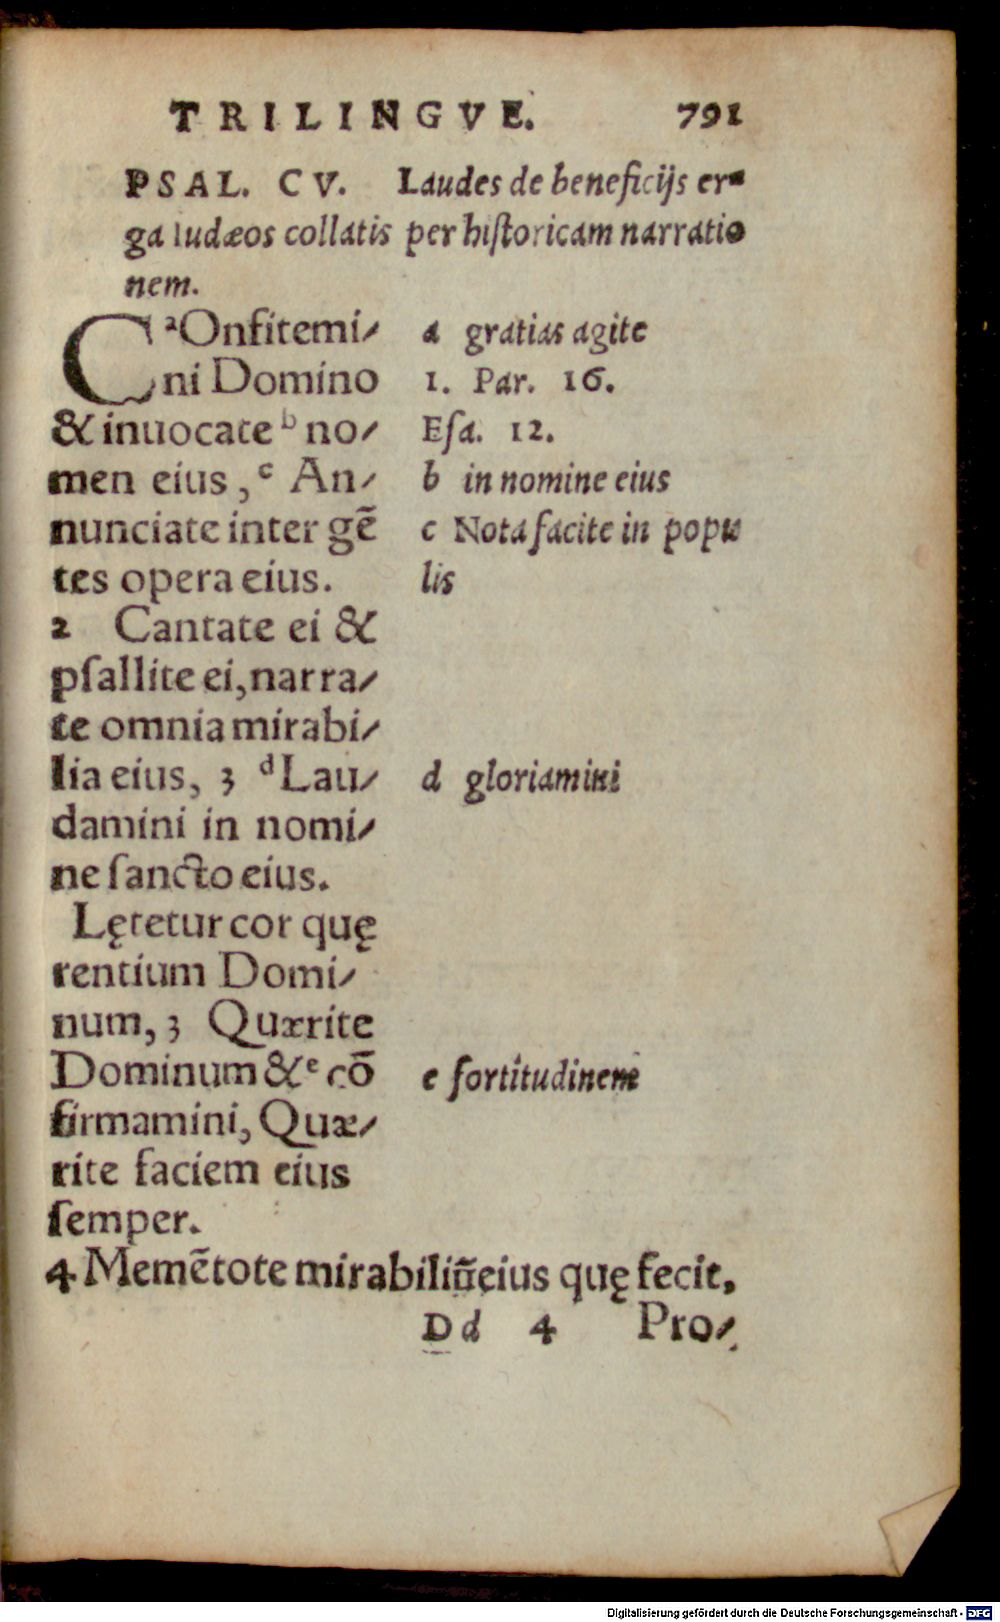 TRILINGVE. 791
PSAL. CV. Laudes de beneficijs er-
ga Iudæos collatis per hiſtoricam narratio
nem.
C ᵃOnfitemi-
ni Domino
& inuocate ᵇ no-
men eius, ᶜ An-
nunciate inter gē
tes opera eius.
2 Cantate ei &
pſallite ei, narra-
te omnia mirabi-
lia eius, 3 ᵈ Lau-
damini in nomi-
ne ſancto eius.
Lętetur cor quę
rentium Domi-
num, 3 Quærite
Dominum & ᵉ cō
firmamini, Quæ-
rite faciem eius
ſemper.
a gratias agite
1. Par. 16.
Eſa. 12.
b in nomine eius
c Nota facite in popu
lis
d gloriamini
e fortitudinem
4 Memētote mirabiliū eius quę fecit,
Dd 4 Pro-
Digitalisierung gefördert durch die Deutsche Forschungsgemeinschaft - DFG